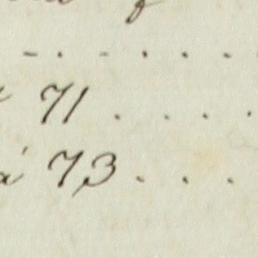 71 . . . .
á 73 . . .